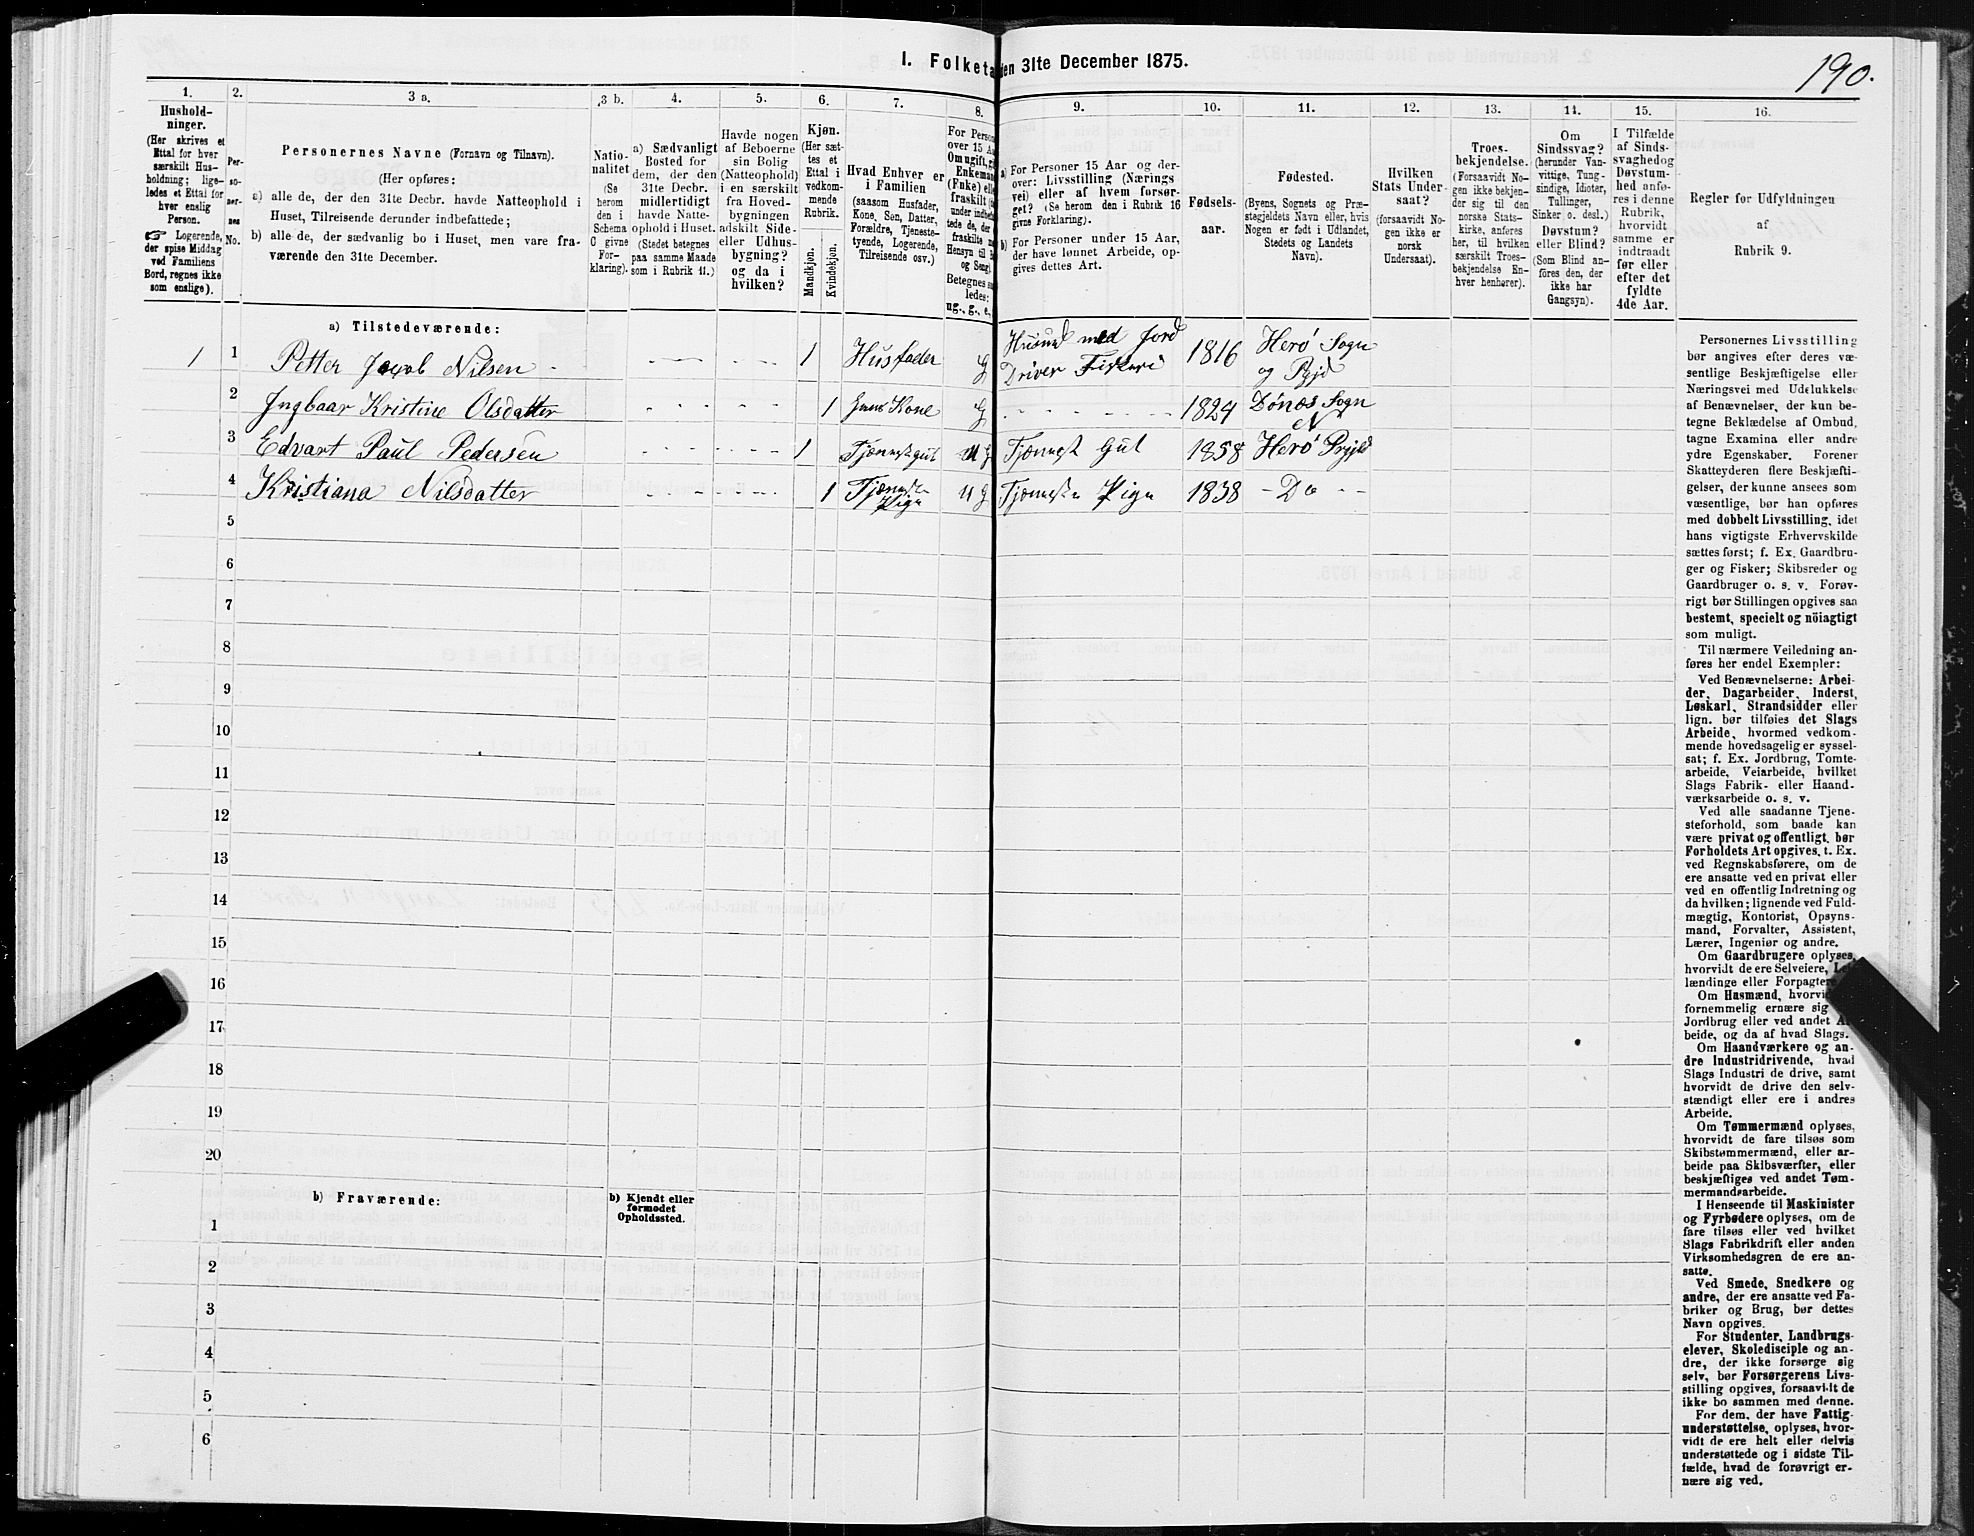 190.
I. Folketa
den 31te December 1875.
1.
Hushold-
ninger.
(Her skrives et
Ettal for hver
særskilt Hus-
holdning; lige-
ledes et Ettal for
hver enslig
Person.
☞ Logerende,
der spise Middag
ved Familiens
Bord, regnes ikke
som enslige).
2.
Per-
so-
ner-
nes
No.
3 a.
Personernes Navne (Fornavn og Tilnavn).
(Her opføres:
a) alle de, der den 31te Decbr. havde Natteophold i
Huset, Tilreisende derunder indbefattede;
b) alle de, der sædvanlig bo i Huset, men vare fra-
værende den 31te December.
3 b.
Natio-
nalitet
(Se
herom
den i
Schema
C givne
For-
klaring).
4.
a) Sædvanligt
Bosted for
dem, der den
31te Decbr.
midlertidigt
havde Natte-
ophold i Huset.
(Stedet betegnes
paa samme Maade
som i Rubrik 11.)
5.
Havde nogen
af Beboerne
sin Bolig
(Natteophold)
i en særskilt
fra Hoved-
bygningen
adskilt Side-
eller Udhus-
bygning?
og da i
hvilken?
6.
Kjøn.
(Her sæt-
tes et
Ettal i
vedkom-
mende
Rubrik.
Mandkjøn.
Kvindekjøn.
7.
Hvad Enhver er
i Familien
(saasom Husfader,
Kone, Søn, Datter,
Forældre, Tjeneste-
tyende, Logerende,
Tilreisende osv.)
8.
For Person
over 15 Aa
Om ugift, gi
Enkeman
(Fnke) ell
fraskilt (
under indbe
tede de, der
fraskilte m
Hensyn til B
og Seng).
Betegnes sa
ledes:
ug., g., e.,
9.
a) For Personer 15 Aar og der-
over: Livsstilling (Nærings
vei) eller af hvem forsør-
get? (Se herom den i Rubrik 16
givne Forklaring).
b) For Personer under 15 Aar,
der have lønnet Arbeide, op-
gives dettes Art.
10.
Fødsels-
aar.
11.
Fødested.
(Byens, Sognets og Præ-
stegjeldets Navn eller, hvis
Nogen er født i Udlandet,
Stedets og Landets
Navn).
12.
Hvilken
Stats Under-
saat?
(forsaavidt No-
gen ikke er
norsk
Undersaat).
13.
Troes-
bekjendelse.
(Forsaavidt No-
gen ikke bekjen-
der sig til den
norske Stats-
kirke, anføres
her, til hvilken
særskilt Troes-
bekjendelse En-
hver henhører).
14.
Om
Sindssvag?
(herunder Van-
vittige, Tung-
sindige, Idioter,
Tullinger,
Sinker o. desl.)
Døvstum?
eller Blind?
(Som Blind an-
føres den, der
ikke har
Gangsyn).
15.
I Tilfælde
af Sinds-
svaghedog
Døvstum-
hed anfø-
res i denne
Rubrik,
hvorvidt
samme er
indtraadt
før eller
efter det
fyldte
4de Aar.
16.
Regler før Udfyldningen
af
Rubrik 9.
a) Tilstedeværende:
1 1 Petter Jacob Nilsen 1 Husfader g Husmd med Jord Driver Fiskeri 1816 Herø Sogn og Pgjd
2 Ingbaar Kristine Olsdatter 1 hans Kone g 1824 Dønæs Sogn
3 Edvart Paul Pedersen 1 Tjænestgut u g Tjænest Gut 1858 Herø Prgjld
4 Kristiana Nilsdatter 1 Tjæneste Pige u g Tjæneste Pige 1838 - Do - -
5
6
7
8
9
10
11
12
13
14
15
16
17
18
19
20
b) Fraværende:
b) Kjendt eller
formodet
Opholdssted.
1
2
3
4
5
6
Personernes Livsstilling
bør angives efter deres væ-
sentlige Beskjæftigelse eller
Næringsvei med Udelukkelse
af Benævnelser, der kun be-
tegne Beklædelse af Ombud,
tagne Examina eller andre
ydre Egenskaber. Forener
Skatteyderen flere Beskjæfti-
gelser, der kunne ansees som
væsentlige, bør han opføres
med dobbelt Livsstilling, idet
hans vigtigste Erhvervskilde
sættes først; f. Ex. Gaardbru-
ger og Fisker; Skibsreder og
Gaardbruger o. s. v. Forøv-
rigt bør Stillingen opgives saa
bestemt, specielt og nöiagtigt
som muligt.
Til nærmere Veiledning an-
føres her endel Exempler:
Ved Benævnelserne: Arbei-
der, Dagarbeider, Inderst,
Løskarl, Strandsidder eller
lign. bør tilføies det Slags
Arbeide, hvormed vedkom-
mende hovedsagelig er syssel-
sat; f. Ex. Jordbrug, Tomte-
arbeide, Veiarbeide, hvilket
Slags Fabrik- eller Haand-
værksarbeide o. s. v.
Ved alle saadanne Tjene-
steforhold, som baade kan
være privat og offentligt, bør
Forholdets Art opgives, t. Ex.
ved Regnskabsførere, om de
ere ansatte ved en privat eller
ved en offentlig Indretning og
da hvilken; lignende ved Fuld-
mægtig, Kontorist, Opsyns-
mand, Forvalter, Assistent,
Lærer, Ingeniør og andre.
Om Gaardbrugere oplyses,
hvorvidt de ere Selveiere, Lei-
lændinge eller Forpagtere
Om Husmænd, hvorvi
fornemmelig ernære sig
Jordbrug eller ved andet A
beide, og da af hvad Slags.
Om Haandværkere og an-
dre Industridrivende, hvad
Slags Industri de drive, samt
hvorvidt de drive den selv-
stændigt eller ere i andres
Arbeide.
Om Tømmermænd oplyses,
hvorvidt de fare tilsøs som
Skibstømmermænd, eller ar-
beide paa Skibsværfter, eller
beskjæftiges ved andet Tøm-
mermandsarbeide.
I Henseende til Maskinister
og Fyrbødere oplyses, om de
fare tilsøs eller ved hvilket
Slags Fabrikdrift eller anden
Virksomhedsgren de ere an-
satte.
Ved Smede, Snedkere og
andre, der ere ansatte ved Fa-
briker og Brug, bør dettes
Navn opgives.
For Studenter, Landbrugs-
elever, Skoledisciple og an-
dre, der ikke forsørge sig
selv, bør Forsørgerens Livs-
stilling opgives, forsaavidt de
ikke bo sammen med denne.
For dem, der have Fattig-
understøttelse, oplyses, hvor-
vidt de ere helt eller delvis
understøttede og i sidste Til-
fælde, hvad de forøvrigt er-
nære sig ved.